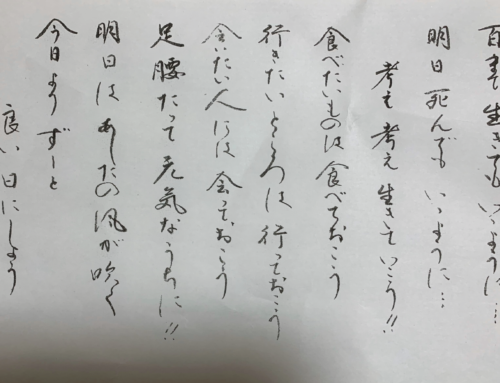 百まで生きてもいゝように…
明日死んでもいゝように…
考え考え生きていこう!!
食べたいものは食べておこう
行きたいところは行っておこう
会いたい人には会っておこう
足腰たって元気なうちに!!
明日はあしたの風が吹く
今日よりずーと
良い日にしよう